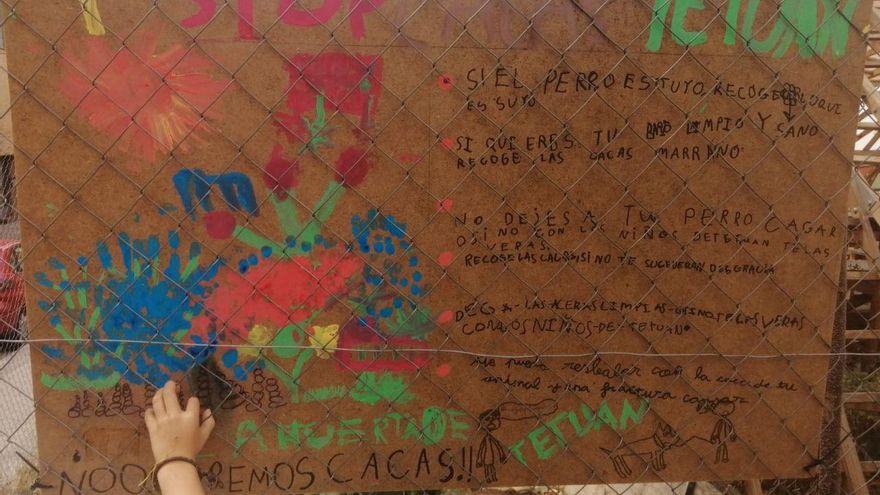 STOP CACAS TETUÁN
SI EL PERRO ES TUYO, RECOGE LO QUE
ES SUYO
SI QUIERES TU LIMPIO Y SANO
RECOGE LAS CACAS MARRANO
NO DEJES A TU PERRO CAGAR
O SI NO CON LOS NIÑOS DE TETUAN TE LAS
VERAS.
RECOGE LAS CACAS SI NO TE SUCEDERAN DESGRACIA
DEGA-LAS ACERAS LIMPIAS-OSINO TE LAS VERAS
CON LOS NIÑOS-DE-TETUAN
resbalar con la caca de tu
animal y una fractura
LA HUERTA DE
TETUAN
¡NO QUEREMOS CACAS!!